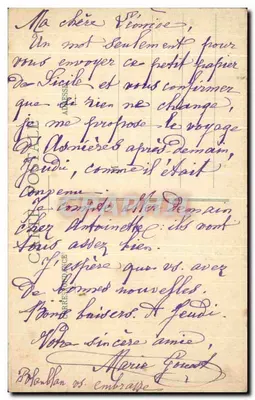 Ma chère Léonise,
Un mot seulement pour
vous envoyer ce petit papier
de Sicile et vous confirmer
que si rien ne change,
je me propose le voyage
d'Asnières après demain,
Jeudi, comme il était
convenu.
Je demain
chez Antoinette: ils vont
tous assez bien.
J'espère que vs. avez
de bonnes nouvelles.
Bons baisers. A Jeudi
Votre sincère amie,
Marie
vs. embrasse
CARTE POSTALE
CORRESPONDANCE